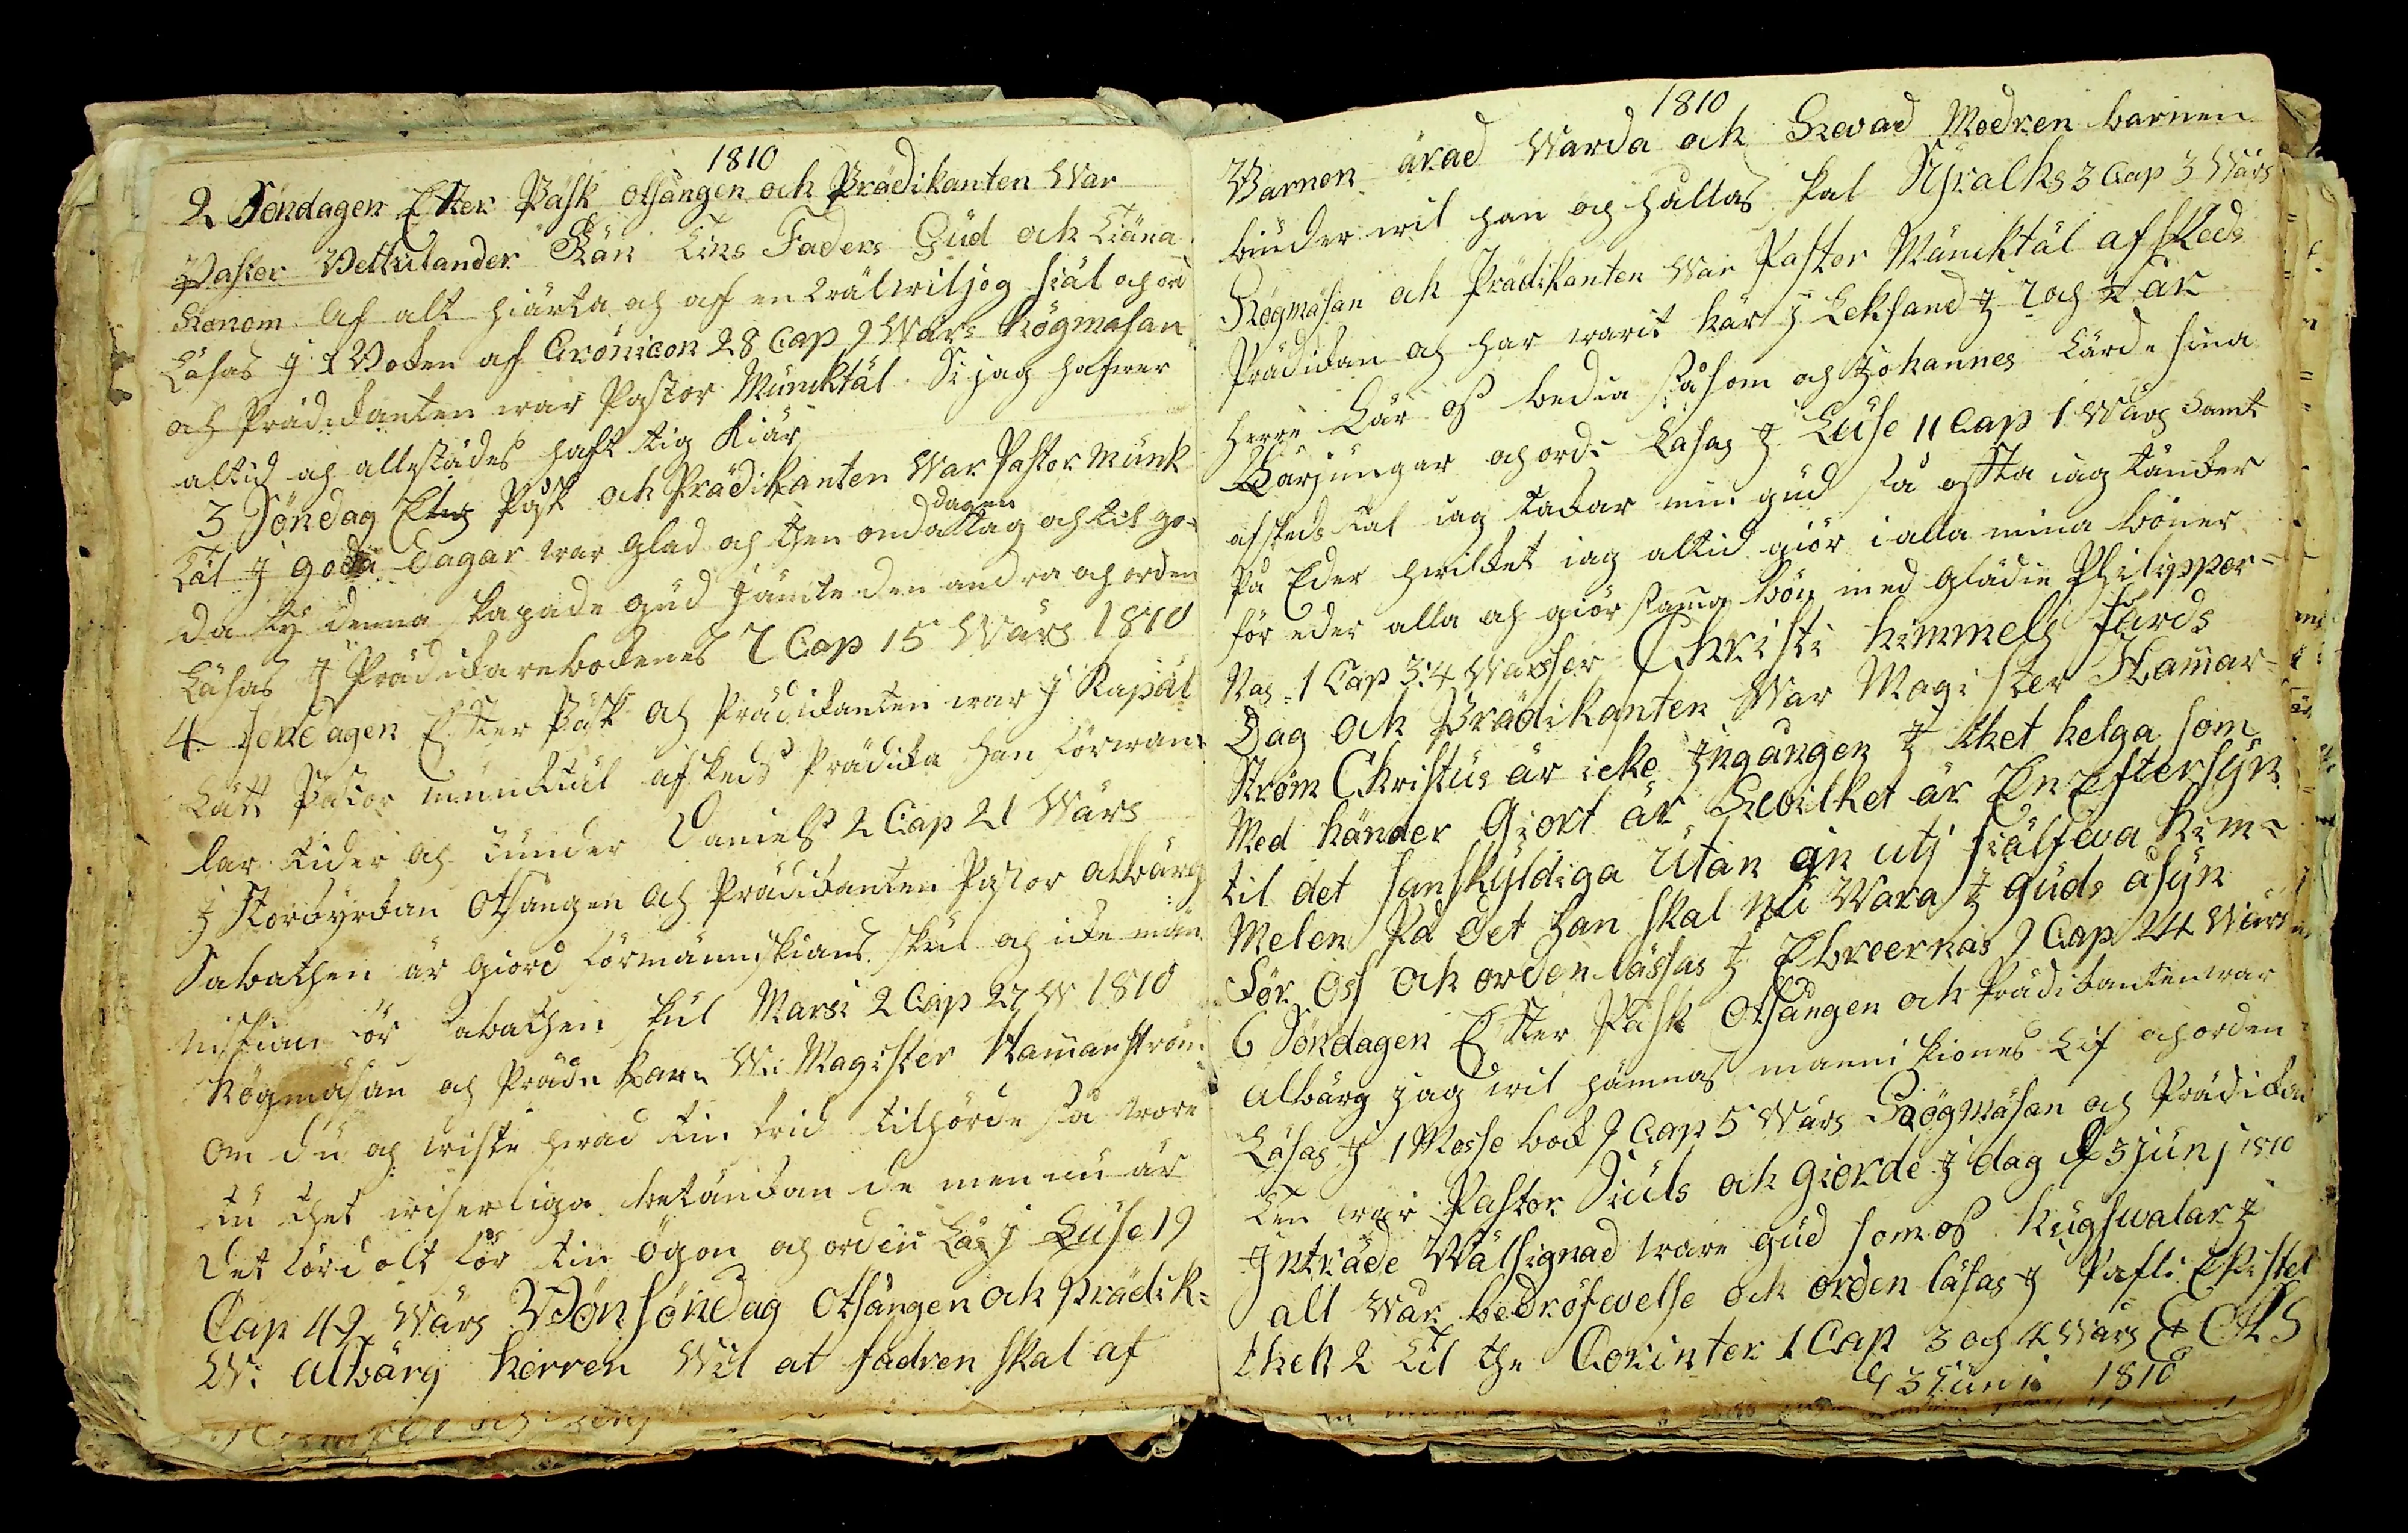 1810
2 Söndagen Efter Påsk otsången och Prädikanten War
Pastor Vettulander Kän tins Faders Gud och tiäna
Honom af alt hiärta och af en wälwiljog siäl och ord
Läsas J 1 Boken af Crönicon 28 Cap 9 Wärs Högmäsan
och Prädikanten war Pastor Muncktäl Si jag hafwer
altid och allestädes haft tig kiär
3 Söndag Etg Påsk och Prädikanten War Pastor Munk
dagen
täl J goda dagar war glad och then onda tag och til go=
da ty denna skapade gud jämte den andra och orden
Läsas J Prädikarebokenes 7 Cap 15 Wärs 1810
4 Söndagen Efter Påsk och Prädikanten war J Kapäl
Lätt Pastor Muncktäl afskeds Prädika han förwan=
lar tider och stunder Daniels 2 Cap 21 Wärs
J Storkyrkan Otsången och Prädikanten Pastor Albärg
Sabathen är giord för människians skul och icke män
niskian för sabathen skul Marsi 2 Cap 27 W 1810
Högmäsan och Prädikan W: Magister Hamarström
Om du och wiste hwad tin frid tilhörde så wore
tu thet wiserliga betänkan de men nu är
Det fördolt för tin ögon och orden Läs J Luse 19
Cap 42 Wärs Bönsöndag Otsången och Prädik=
W: Albärg Herren Wil at fadren skal af
1810
Barnen ärad Warda och Hwad Modren barnen
biuder wil han och hållas skal Syralks 3 Cap 3 Wärs
Högmäsan och Prädikanten War Pastor Muncktäl afskeds
Prädikan och har warit här J Leksand J 7 och ½ år
Herre Lär oss bedia såsom och Johannes Lärde sina
Lärjungar och orde Läsas J Luse 11 Cap 1 Wärs Samt
afskeds tal iag tackar min gud så offta iag tänker
på Eder hwilket iag altid giör i alla mina böner
för eder alla och giör samma bön med Glädie Philipper=
nas 1 Cap 3:4 Wärsser Christi Himmels färds
Dag och Prädikanten War Magister Hamar=
ström Christus är icke Jngången J thet helga som
Med händer Giort är Hwilket är En Eftersyn
til det sanskyldiga Utan in utj siälfwa him=
Melen på det han skal nu Wara J Guds åsyn
För Oss och orden lässas J Ebreernas 9 Cap 24 Wärs
6 Söndagen Efter Påsk Otsången och Prädikanten war
Albärg jag wil hämnas menniskiones Lif och orden
Läsas J 1 Mosse bock 9 Cap 5 Wärs Högmäsan och Prädikan
ten war Pastor Siuls och giorde J dag d 3 junj 1810
Jnträde Wälsignad ware gud som oss Hugswalar J
alt wår bedröfwelse och orden läsas J Pafli Epistel
then 2 til the Corinter 1 Cap 3 och 4 Wärs E OHS
d 3 Junii 1810